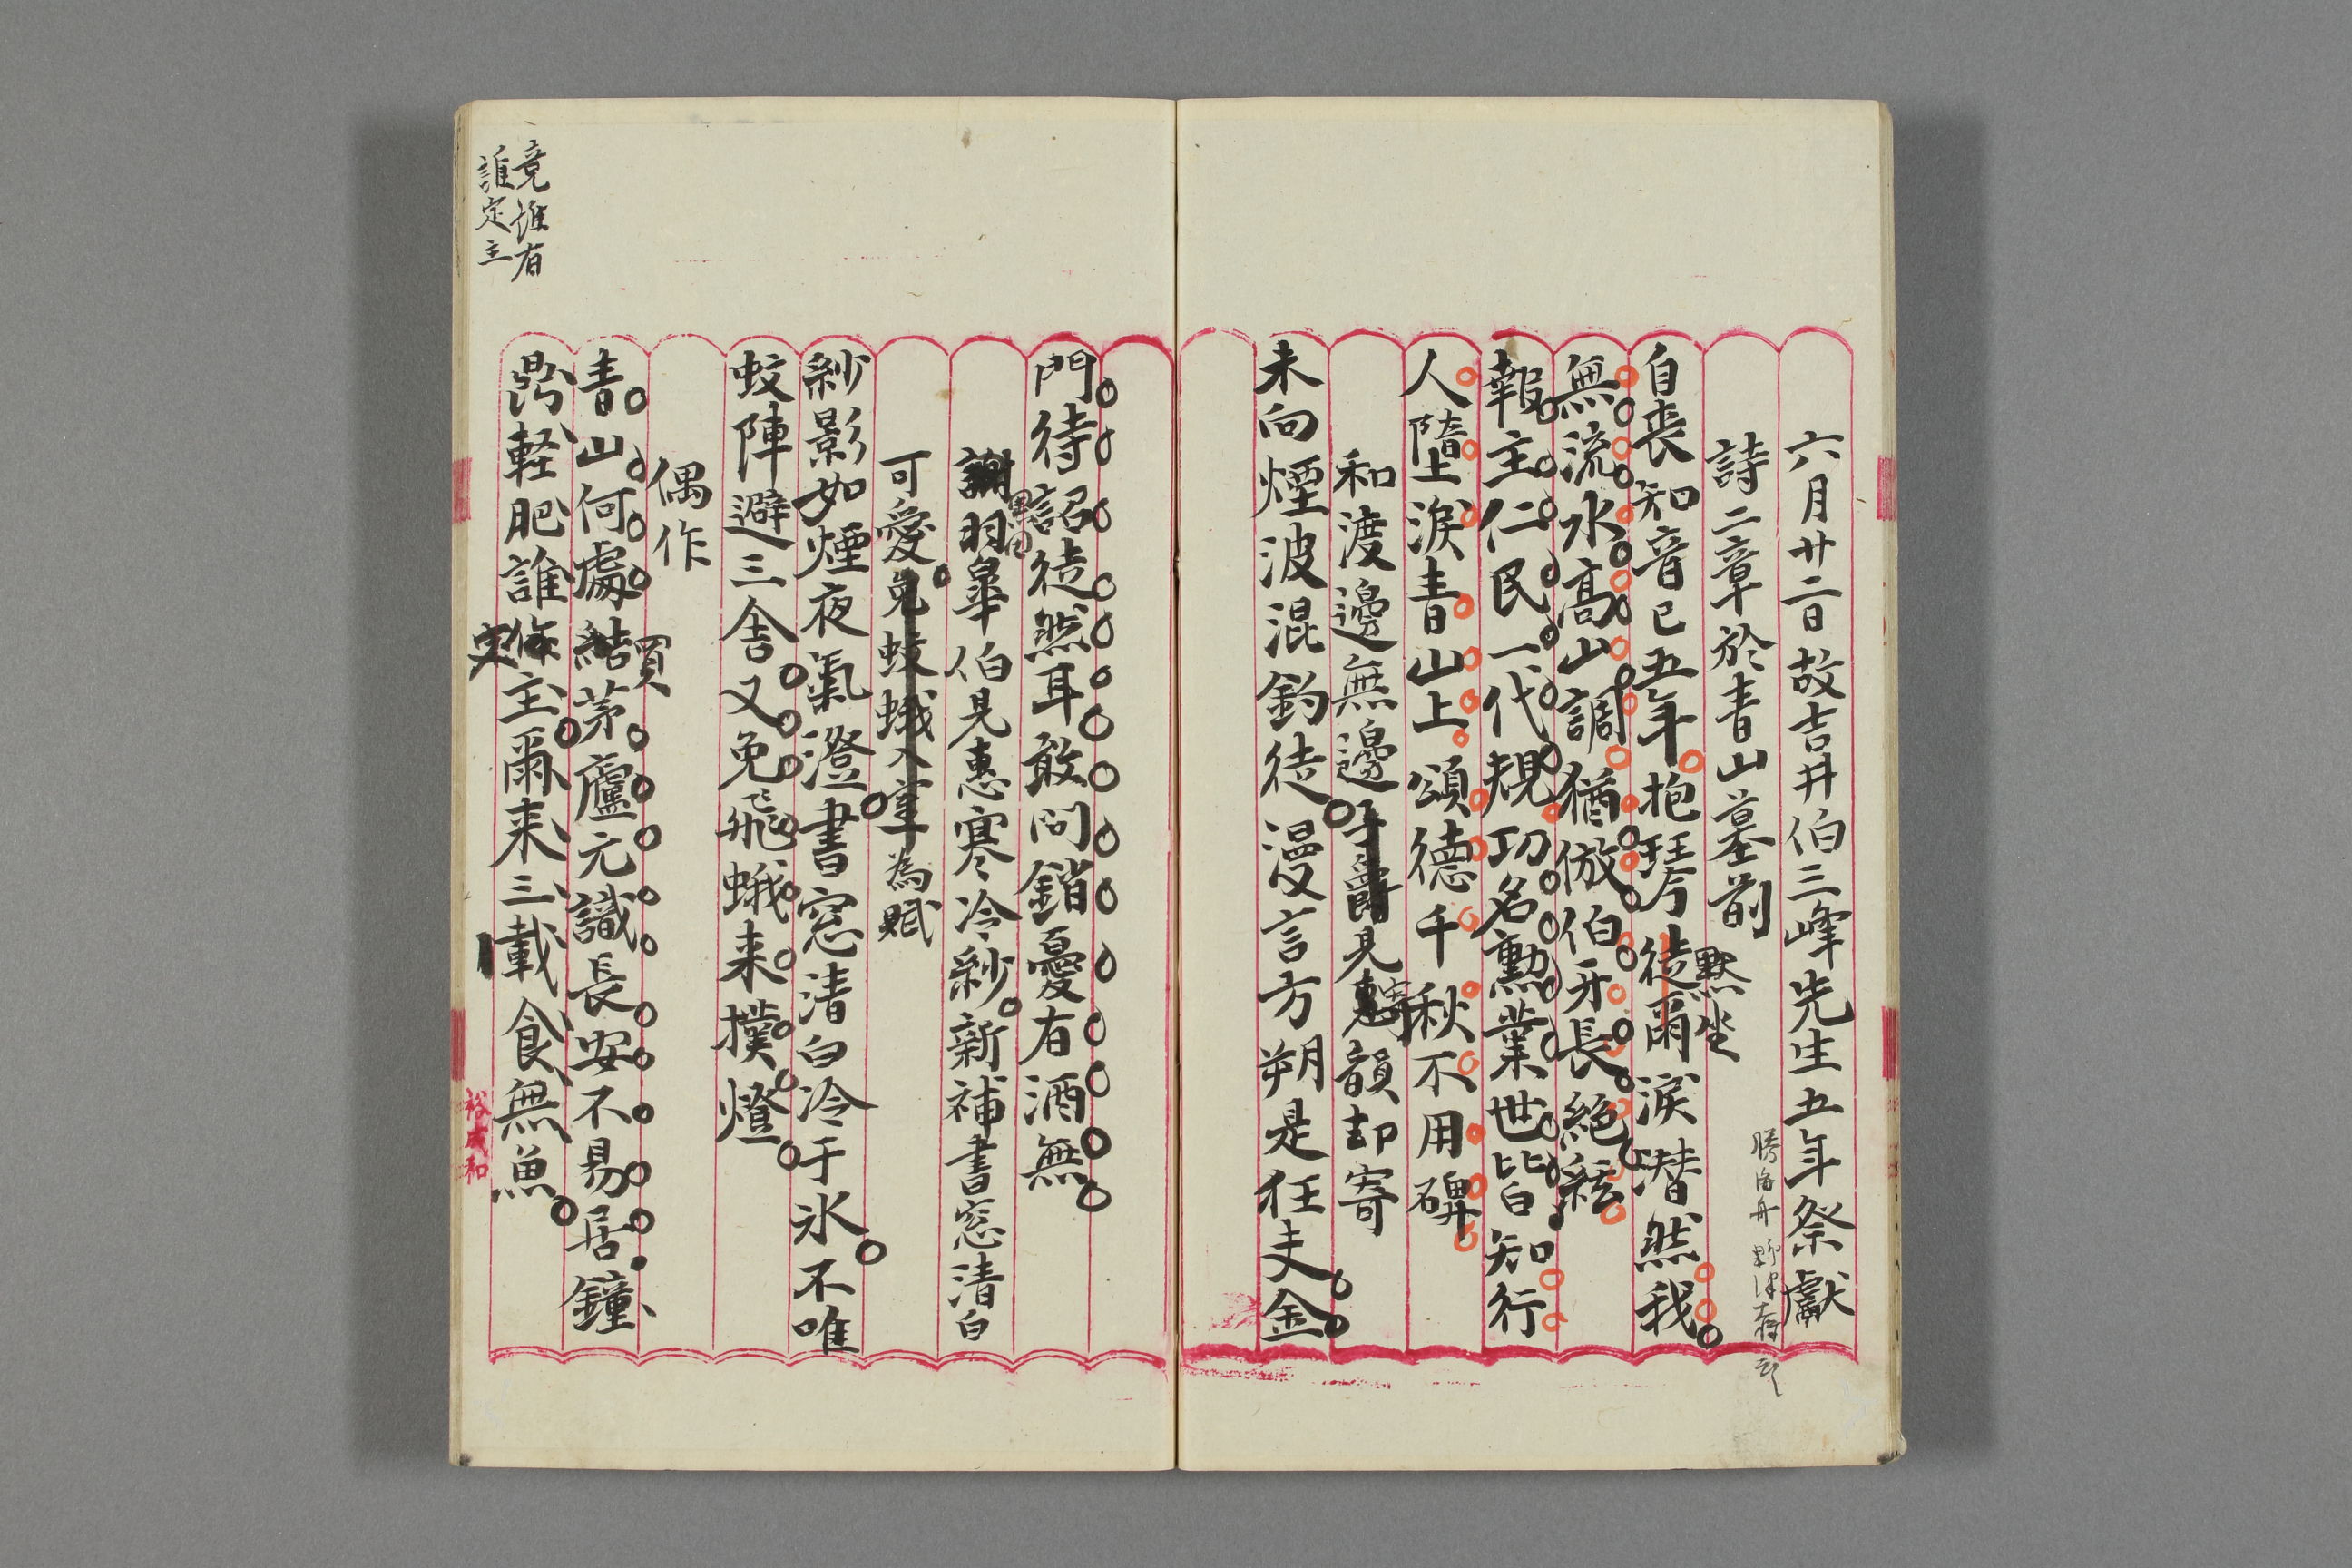 六月廿二日故吉井伯三峰先生五年祭獻
詩二章於青山墓前
勝海舟
自喪知音已五年抱琴徒爾淚潜然我
默坐
無流水高山調猶倣伯牙長絕絃
報主仁民一代規功名勲業世皆知行
人墮淚青山上頌德千秋不用碑
和渡邊無邊子爵見惠韻却寄
寄
未向煙波混釣徒漫言方朔是狂夫金
門待詔徒然耳敢問銷憂有酒無
謝羽皐伯見惠寒冷紗新補書窓清白
黑田
可愛免蚊蛾入室為賦
紗影如煙夜氣澄書窓清白冷于氷不唯
蚊陣避三舍又免飛蛾来撲燈
偶作
青山何處結茅廬元識長安不易居鐘
買
鼎軽肥誰作主爾来三載食無魚
定
竟誰有
誰定主
裕成和